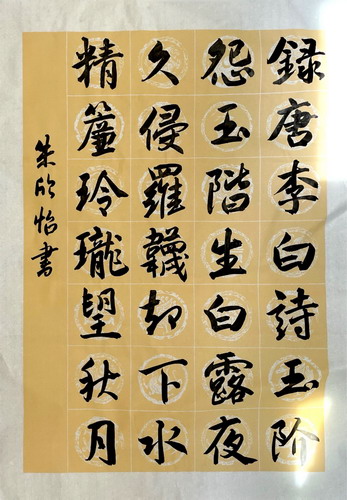 録唐李白詩玉阶
怨玉階生白露夜
久侵羅韈却下水
精簾玲瓏望秋月
朱欣怡書